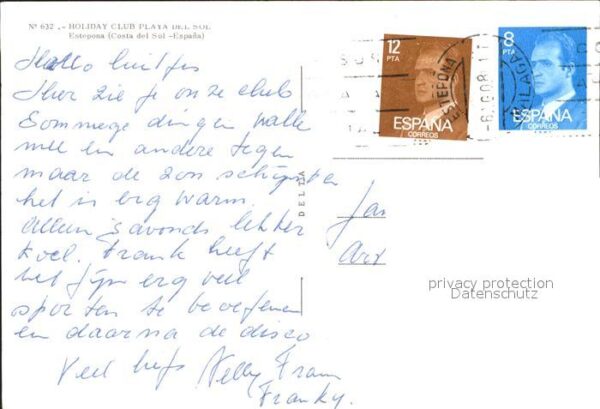 Nº 632 .- HOLIDAY CLUB PLAYA DEL SOL
Estepona (Costa del Sol -España)
Hallo luitjes
Hier zie je onze club
Sommege dingen valle
mee en andere tegen
maar de zon schijnt en
het is erg warm.
Alleen 's avonds lekker
koel. Frank heeft
het fijn erg veel
sporten te beoefenen
en daarna de disco
Veel liefs Nelly Frans
Franky.
DELTA
12
PTA
ESPAÑA
CORREOS
8
PTA
ESPAÑA
CORREOS
ESTEPONA
MALAGA
Jan
privacy protection
Datenschutz